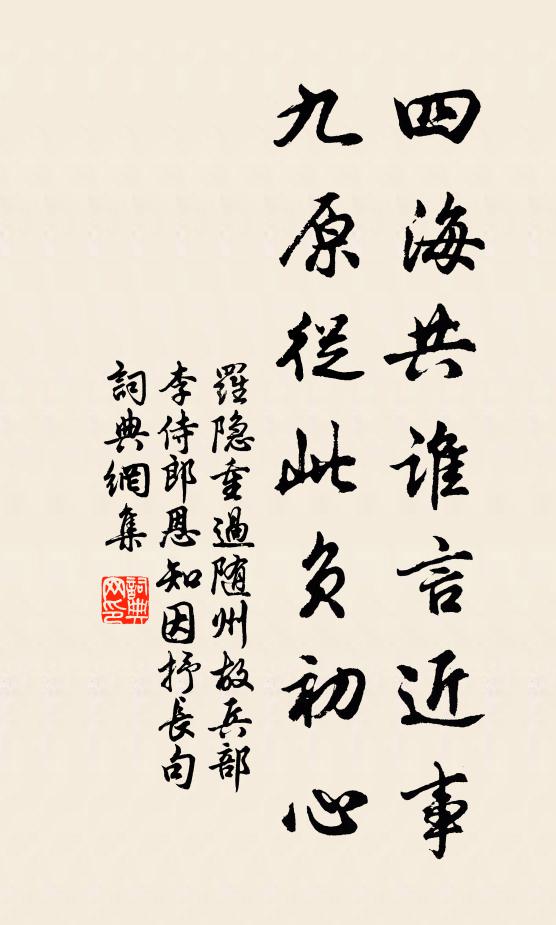 四海共谁言近事
九原從此负初心
羅隐重過随州故兵部
李侍郎恩知因抒長句
詞典網集
詞典
网印